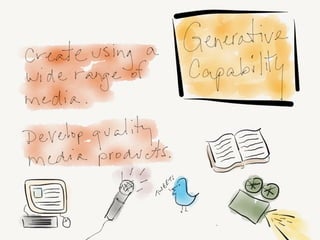 Generative
Capability
Create using a
wide range of
media.
Develop quality
media products.
tweets